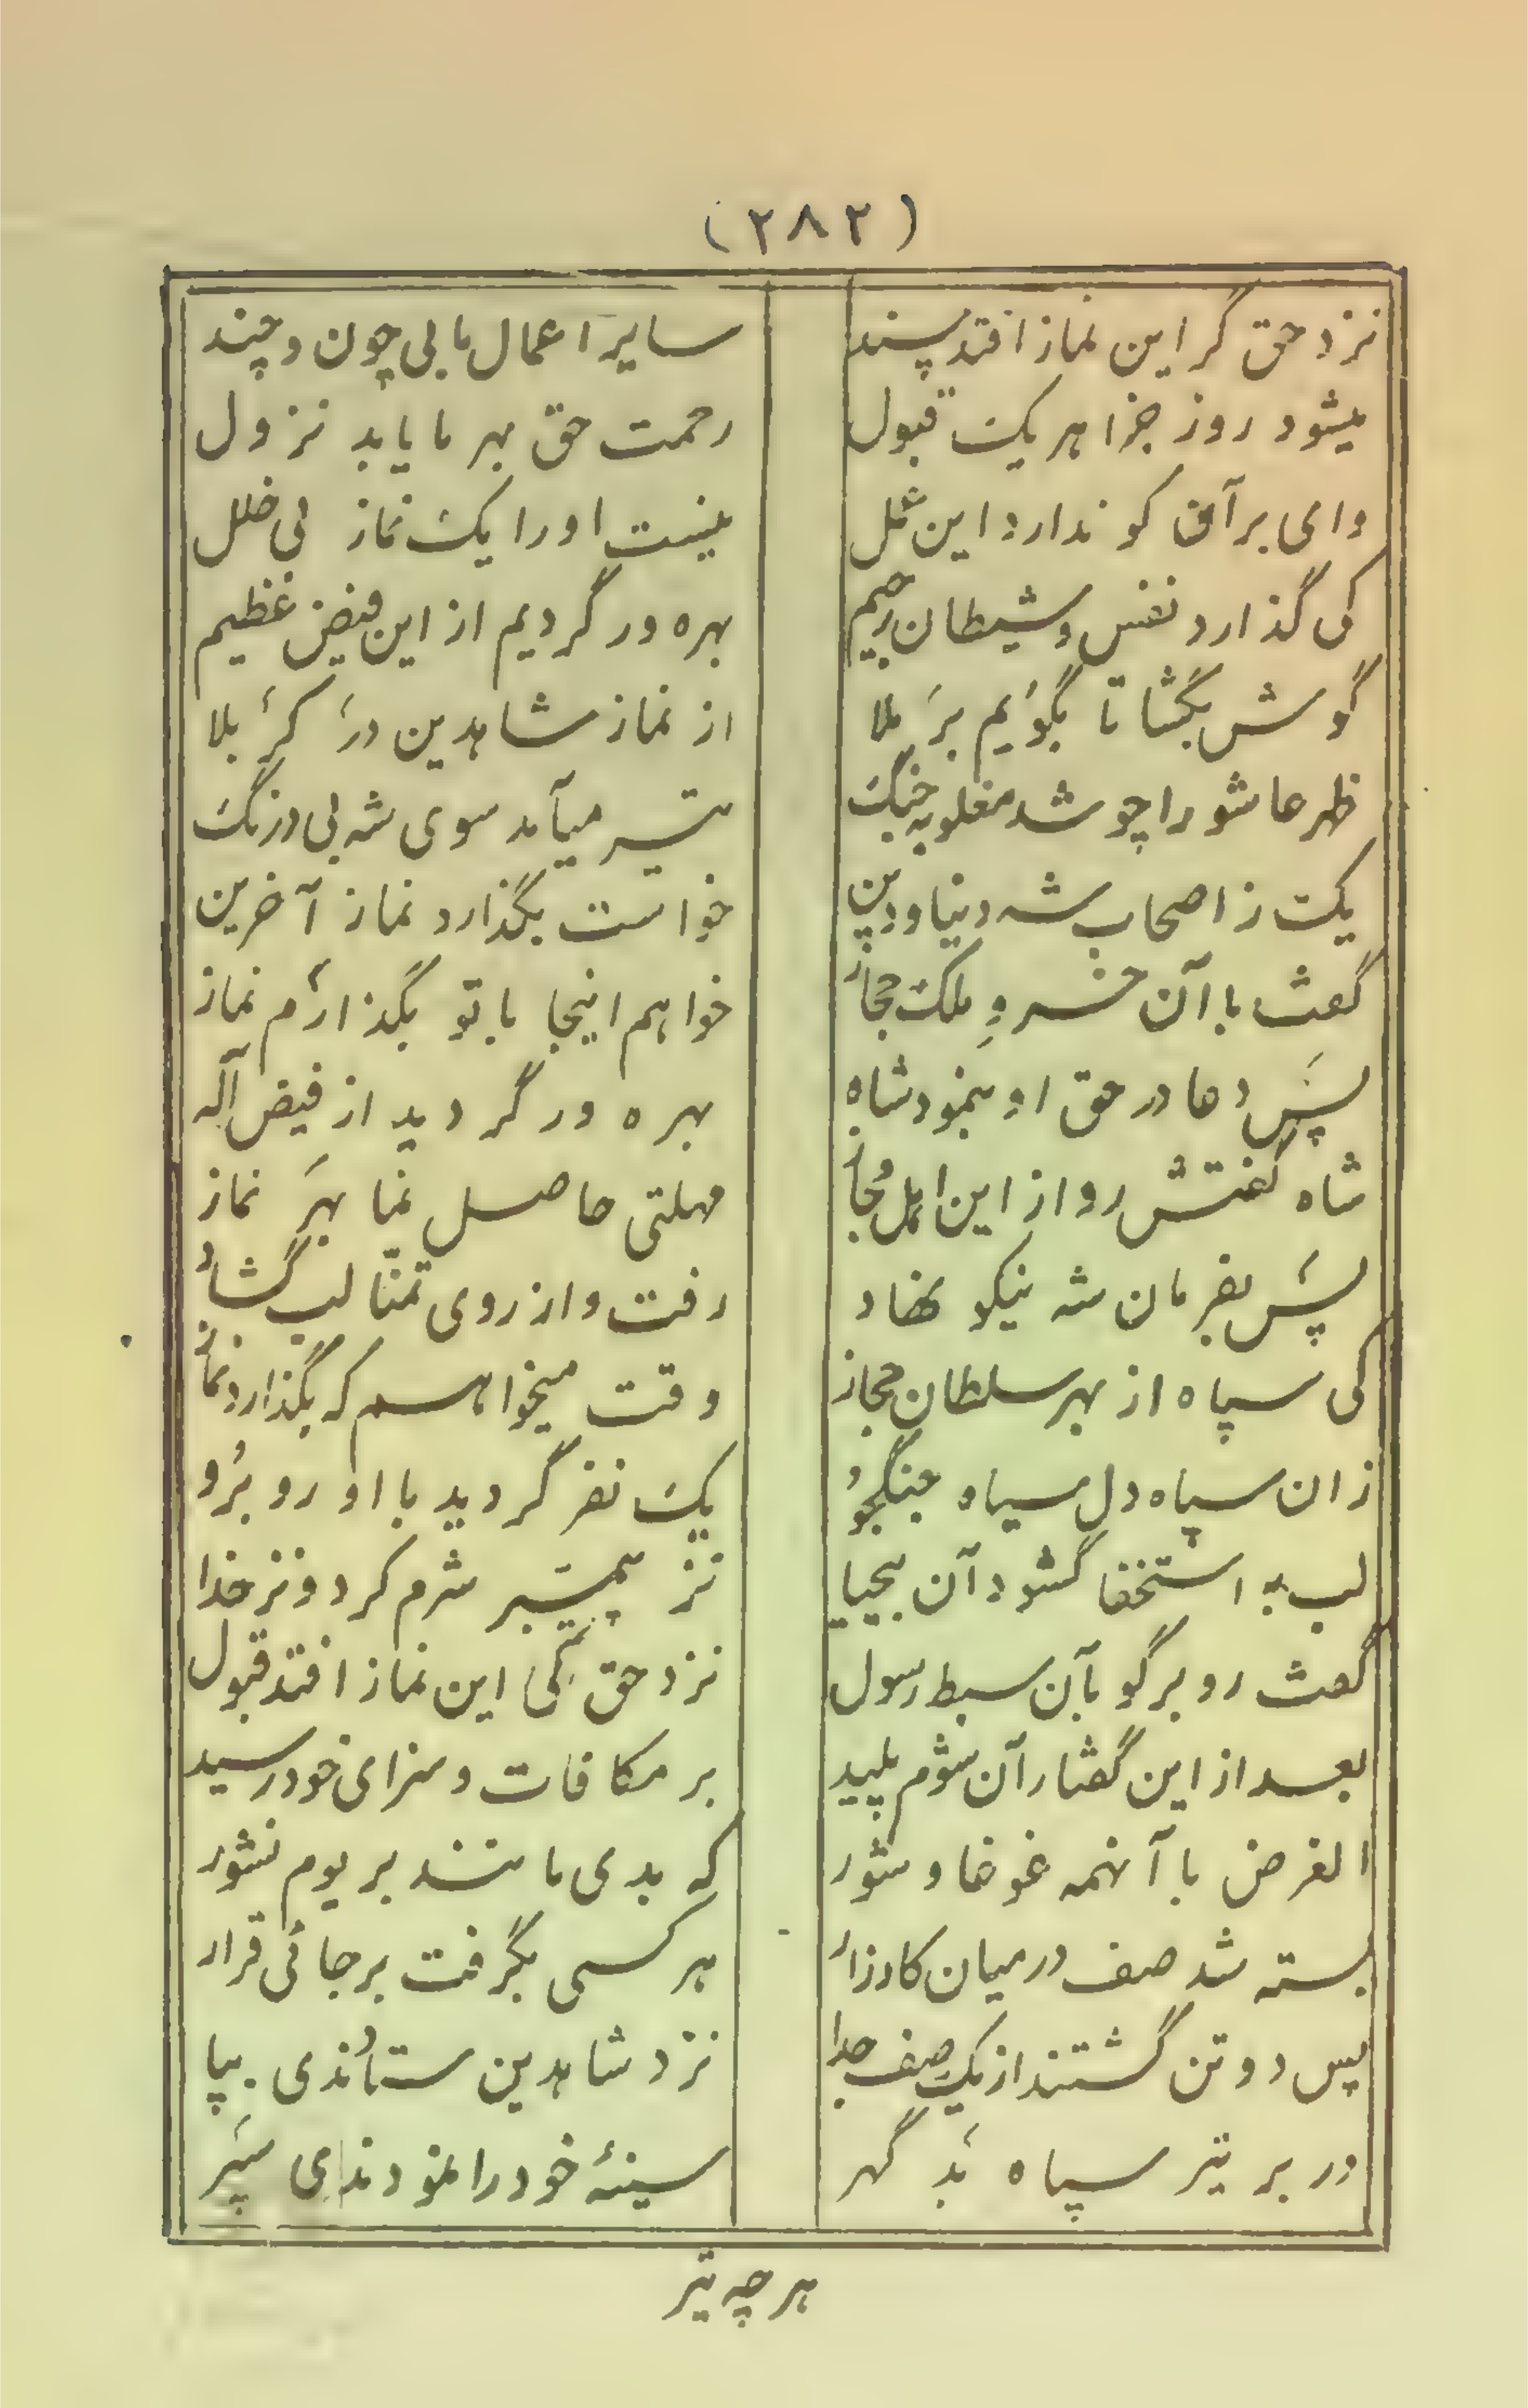 (۲۸۲)
نزد حق گر این نماز افتد پسند سایر اعمال ما بی چون و چند
میشود روز جزا هر یک قبول رحمت حق بهر ما یابد نزول
وای بر آن کو ندارد این عمل نیست او را یک نماز بی خلل
کی گذارد نفس و شیطان رجیم بهره ور گردیم از این فیض عظیم
گوش بگشا تا بگویم بر ملا از نماز شاه دین در کربلا
ظهر عاشورا چو شد مغلوبه جنگ تیر میآمد سوی شه بی درنگ
یک ز اصحاب شه دنیا و دین خواست بگذارد نماز آخرین
گفت با آن خسرو ملک حجاز خواهم اینجا با تو بگذارم نماز
پس دعا در حق او بنمود شاه بهره ور گردید از فیض آله
شاه گفتش رو از این اهل مجاز مهلتی حاصل نما بهر نماز
پس بفرمان شه نیکو نهاد رفت و از روی تمنّا لب گشاد
کی سپاه از بهر سلطان حجاز وقت میخواهم که بگذارد نماز
زان سپاه دل سیاه جنگجو یک نفر گردید با او روبرو
لب به استخفا گشود آن بیحیا نز پیمبر شرم کرد و نز خدا
گفت رو برگو بآن سبط رسول نزد حق کی این نماز افتد قبول
بعد از این گفتار آن شوم پلید بر مکافات و سزای خود رسید
الغرض با آنهمه غوغا و شور که بدی مانند بر یوم نشور
بسته شد صف در میان کارزار هر کسی بگرفت بر جائی قرار
پس دو تن گشتند از یک صف جدا نزد شاه دین ستاندی بپا
در بر تیر سپاه بد گهر سینهٔ خود را نمودندی سپر
هر چه تیر